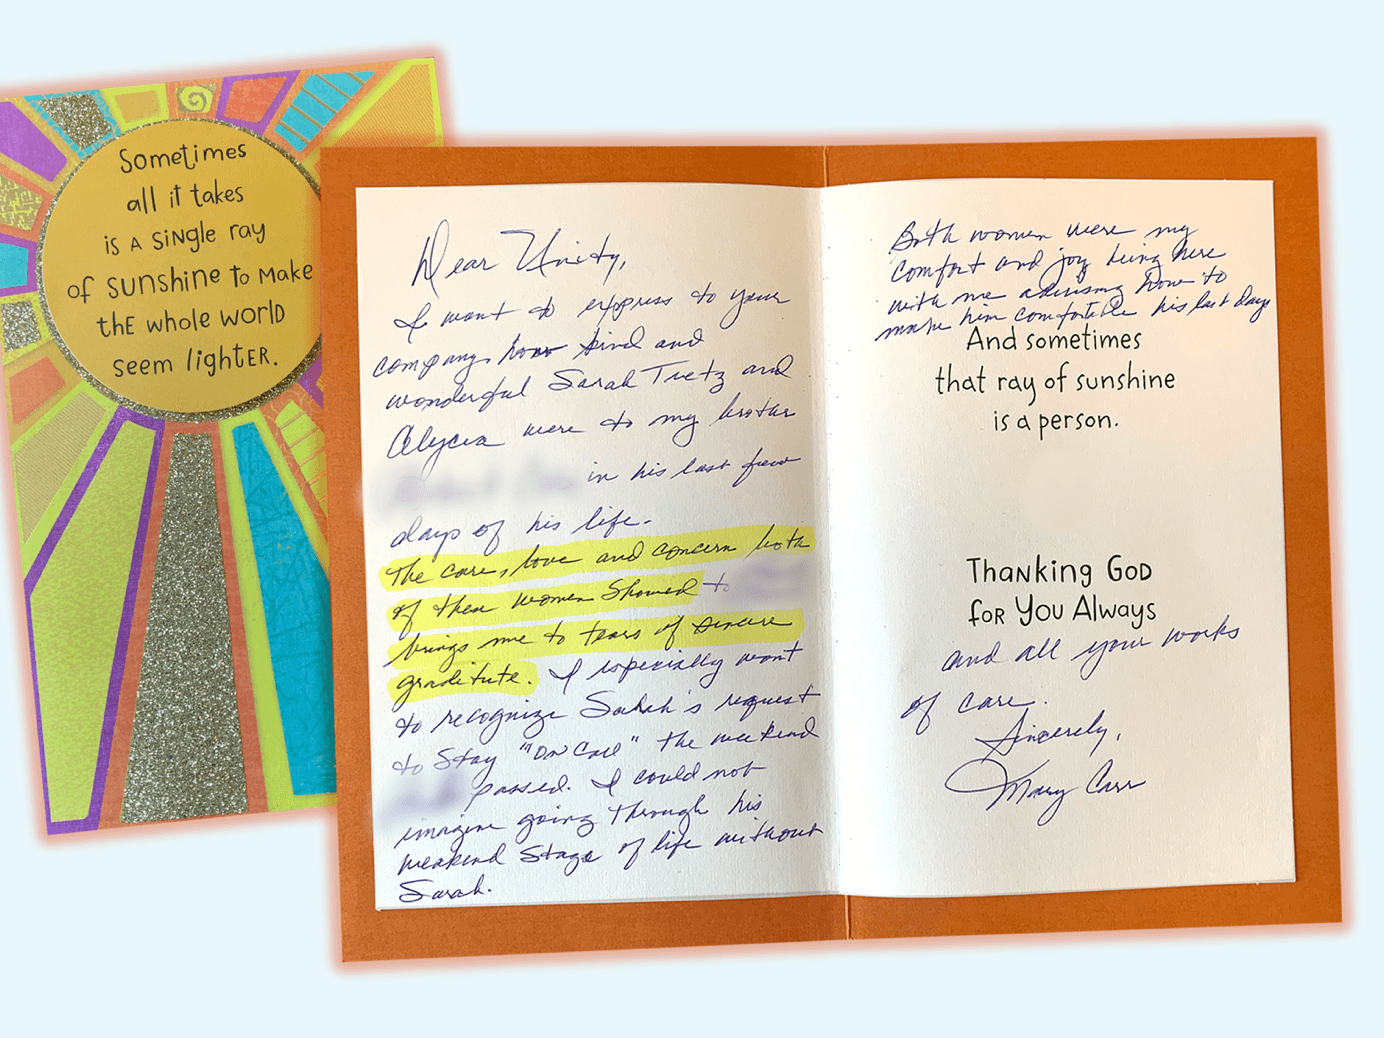 Sometimes
all it takes
is a single ray
of sunshine to make
the whole world
seem lighter.
Dear Unity,
I want to express to your
company how kind and
wonderful Sarah Tretz and
Alycia were to my brother
in his last few
days of his life.
The care, love and concern both
of these women showed to
brings me to tears of sincere
graditute. I especially want
to recognize Sarah's request
to stay "on call" the weekend
passed. I could not
imagine going through his
weekend stage of life without
Sarah.
Both women were my
comfort and joy being here
with me advising how to
make him comfortable his last days
And sometimes
that ray of sunshine
is a person.
Thanking God
for You Always
and all your works
of care.
Sincerely,
Mary Carr